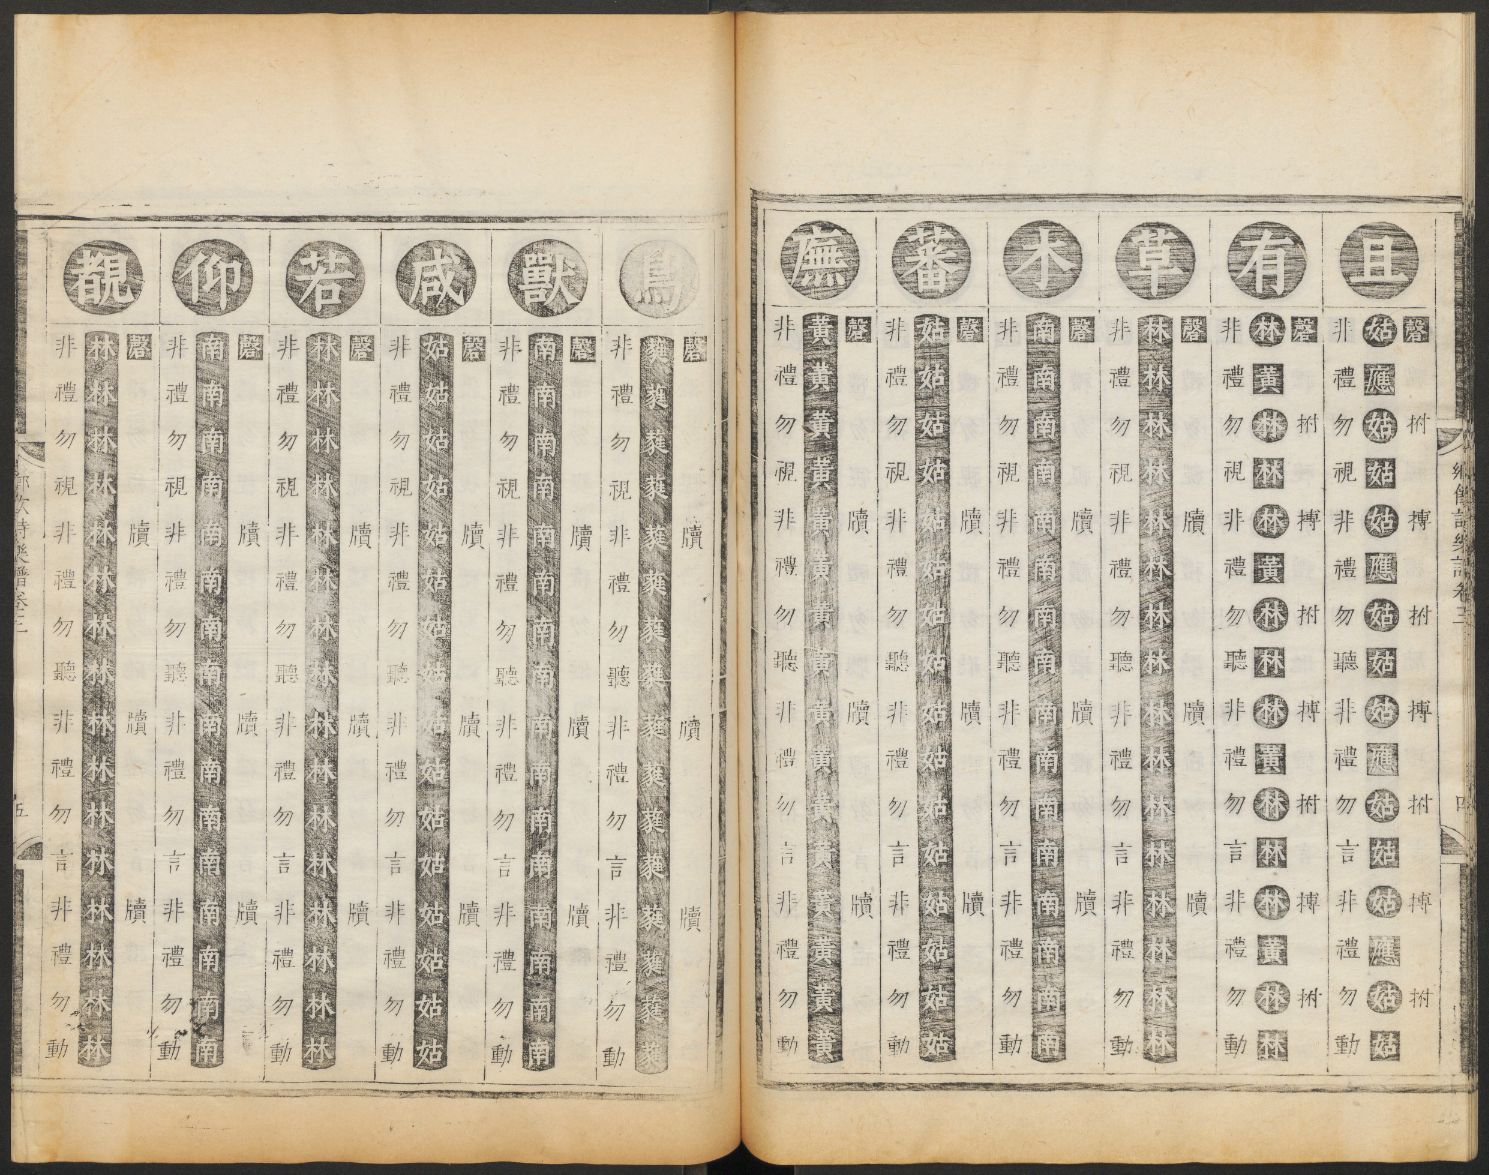 鄉飲詩樂譜卷三
四
且
磬拊搏拊搏拊搏拊
姑應姑姑姑應姑姑姑應姑姑姑應姑姑
非禮勿視非禮勿聽非禮勿言非禮勿動
有
磬拊搏拊搏拊搏拊
林黃林林林黃林林林黃林林林黃林林
非禮勿視非禮勿聽非禮勿言非禮勿動
草
磬牘牘牘
林林林林林林林林林林林林林林林林
非禮勿視非禮勿聽非禮勿言非禮勿動
木
磬牘牘牘
南南南南南南南南南南南南南南南南
非禮勿視非禮勿聽非禮勿言非禮勿動
蕃
磬牘牘牘
姑姑姑姑姑姑姑姑姑姑姑姑姑姑姑姑
非禮勿視非禮勿聽非禮勿言非禮勿動
廡
磬牘牘牘
黃黃黃黃黃黃黃黃黃黃黃黃黃黃黃黃
非禮勿視非禮勿聽非禮勿言非禮勿動
鳥
磬牘牘牘
蕤蕤蕤蕤蕤蕤蕤蕤蕤蕤蕤蕤蕤蕤蕤蕤
非禮勿視非禮勿聽非禮勿言非禮勿動
獸
磬牘牘牘
南南南南南南南南南南南南南南南南
非禮勿視非禮勿聽非禮勿言非禮勿動
咸
磬牘牘牘
姑姑姑姑姑姑姑姑姑姑姑姑姑姑姑姑
非禮勿視非禮勿聽非禮勿言非禮勿動
若
磬牘牘牘
林林林林林林林林林林林林林林林林
非禮勿視非禮勿聽非禮勿言非禮勿動
仰
磬牘牘牘
南南南南南南南南南南南南南南南南
非禮勿視非禮勿聽非禮勿言非禮勿動
覩
磬牘牘牘
林林林林林林林林林林林林林林林林
非禮勿視非禮勿聽非禮勿言非禮勿動
鄉飲詩樂譜卷三
五